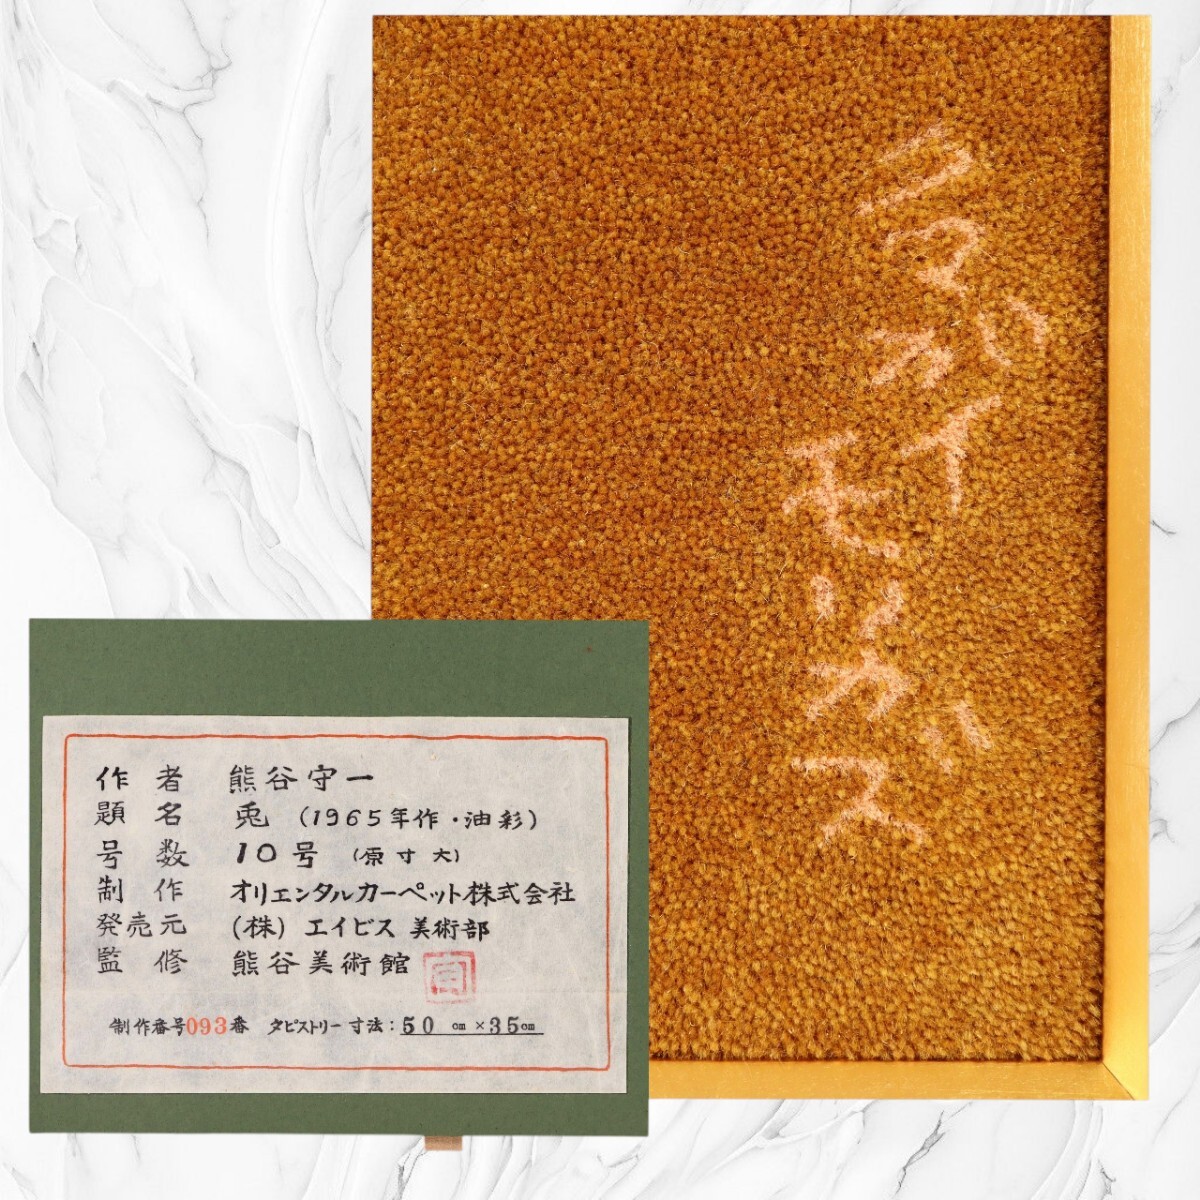 クマガイモリカズ
作者 熊谷守一
題名 兎 (1965年作・油彩)
号数 10号 (原寸大)
制作 オリエンタルカーペット株式会社
発売元 (株) エイビス 美術部
監修 熊谷美術館
制作番号093番 タピストリー寸法:50 cm×35cm